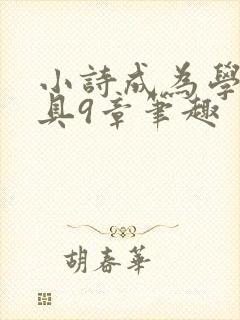 小詩成為學
具9章筆趣
胡春華